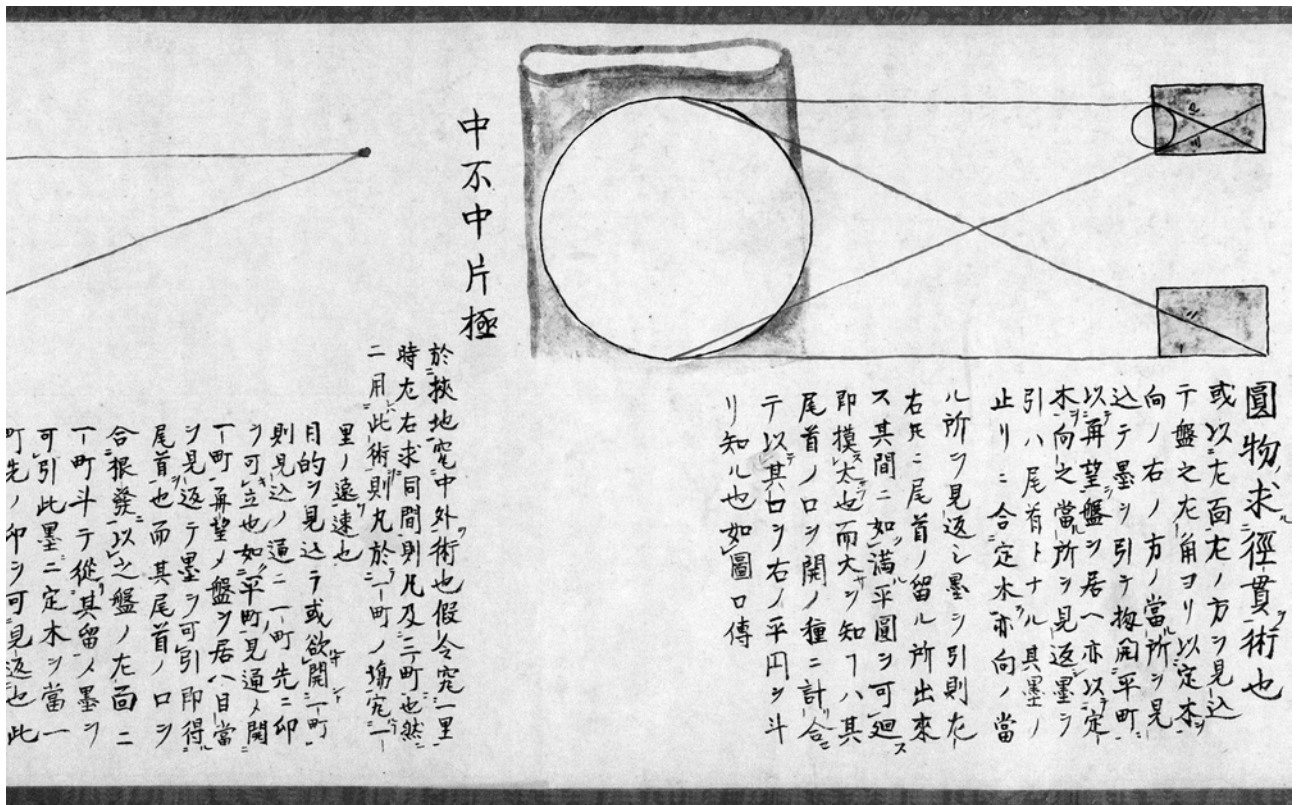 圓物求徑貫術也
或以左面左ノ方ヲ見込
テ盤之左角ヨリ以定木
向ノ右ノ方ノ當所ヲ見
込テ墨ヲ引テ拨開平町
以再望盤ヲ居ヘ亦以定
木向之當所ヲ見返墨ヲ
引ハ尾首トナル其墨ノ
止リニ合定木亦向ノ當
ル所ヲ見返シ墨ヲ引則左
右共ニ尾首ノ留ル所出來
ス其間ニ如滿平圓ヲ可廻
即摸太也而大サヲ知ーハ其
尾首ノ口ヲ開ノ種ニ計合
テ以其口ヲ右ノ平円ヲ斗
リ知ル也如圖口傳
中不中片極
於挾地究中外術也假令究一里
時左右求同間則凡及三町也然
ニ用此術則九於一町ノ塲究一
里ノ遠速也
目的ヲ見込テ或欲開一町
則見込ノ通ニ一町先ニ印
ヲ可立也如平町見通ノ開
一町再望ノ盤ヲ居ヘ目當
ヲ見返テ墨ヲ可引即得
尾首也而其尾首ノ口ヲ
合根發以之盤ノ左面ニ
一町斗テ從其留ノ墨ヲ
可引此墨ニ定木ヲ當一
町先ノ印ヲ可見返也此